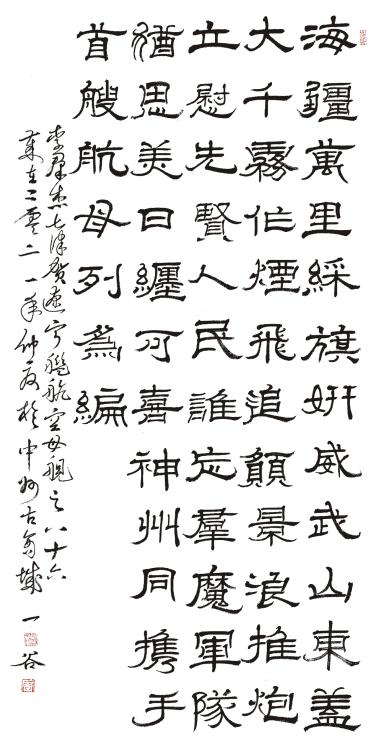 海疆萬里綵旗妍威武山東蓋
大千霧作煙飛追顛景浪推炮
立慰先賢人民誰忘羣魔軍隊
猶思美日纏可喜神州同攜手
首艘航母列為編
李羣杰七律賀遼寧艦航空母艦之八十六
歲在二零二一年仲夏於中州古商城 一谷